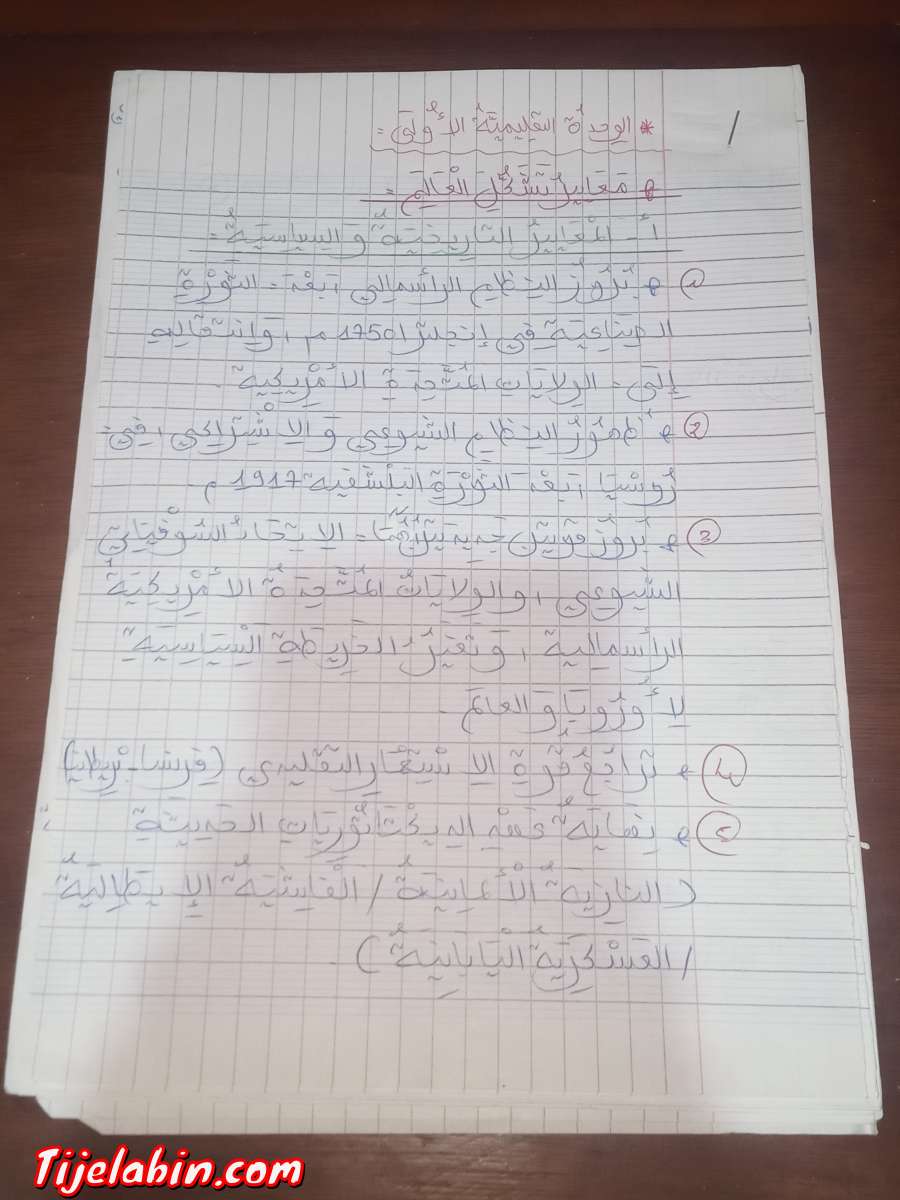 1
* الوحدة التعليمية الأولى =
* معايير تشكل العالم =
أ - المعايير التاريخية والسياسية =
1 * بروز النظام الرأسمالي، بعد = الثورة
الصناعية في إنجلترا 1750م، وانتقاله
إلى = الولايات المتحدة الأمريكية.
2 * ظهور النظام الشيوعي والاشتراكي، في:
روسيا، بعد الثورة البلشفية 1917م.
3 * بروز قوتين جديدتين = الاتحاد السوفياتي
الشيوعي، والولايات المتحدة الأمريكية
الرأسمالية، وتغير الخريطة السياسية
لأوروبا والعالم.
4 * تراجع قوة الاستعمار التقليدي (فرنسا - بريطانيا)
5 * نهاية عهد الديكتاتوريات الحديثة
(النازية الألمانية / الفاشية الإيطالية
/ العسكرية اليابانية)
Tijelabin.com